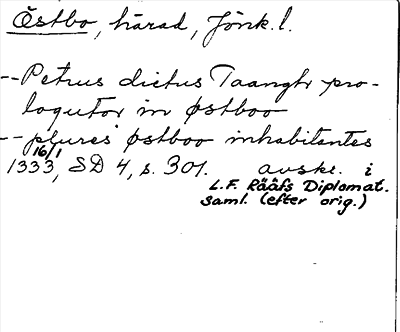 Östbo, härad, Jönk. l.
-- Petrus dictus Taanghr pro-
loqutor in østboo
-- plures østboo inhabitantes
16/1
1333, SD 4, s. 301. avskr. i
L.F. Rääfs Diplomat.
saml. (efter orig.)